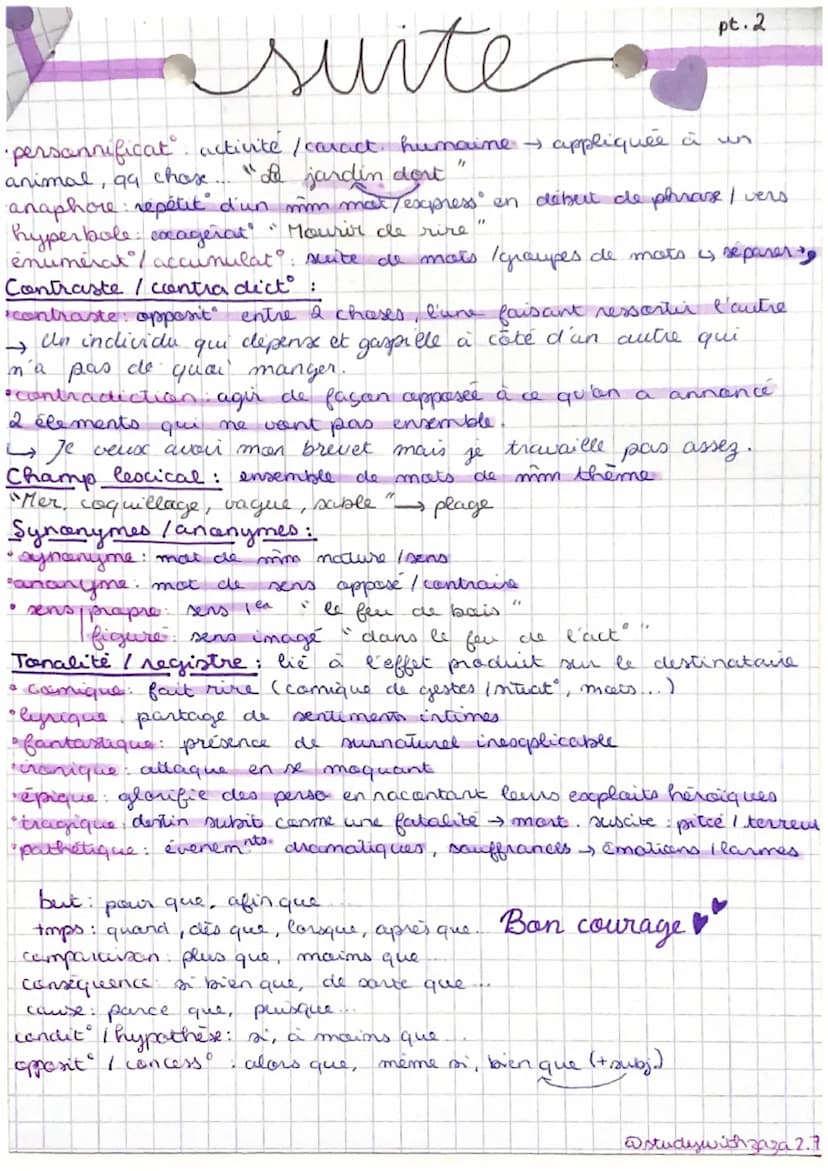 pt. 2
suite
• personnificat°. activité / caract. humaine → appliquée à un
animal, qq chose... "Le jardin dort"
anaphore: répétit° d'un mm mot / express° en début de phrase / vers
hyperbole: exagérat° "Mourir de rire"
énumérat° / accumulat°: suite de mots / groupes de mots ↳ séparer → ,
Contraste / contradict° :
• contraste: opposit° entre 2 choses, l'une faisant ressortir l'autre
→ Un individu qui dépense et gaspille à côté d'un autre qui
n'a pas de quoi manger.
• contradiction: agir de façon opposée à ce qu'on a annoncé
2 élements qui ne vont pas ensemble.
↳ Je veux avoir mon brevet mais je travaille pas assez.
Champ lexical : ensemble de mots de mm thème
"Mer, coquillage, vague, sable" → plage
Synonymes / anonymes :
• synonyme: mot de mm nature / sens
• anonyme: mot de sens opposé / contraire
• sens propre: sens 1er "le feu de bois"
figuré: sens imagé "dans le feu de l'act°"
Tonalité / registre : lié à l'effet produit sur le destinataire
• comique: fait rire (comique de gestes / situat°, mots...)
• lyrique: partage de sentiments intimes
• fantastique: présence de surnaturel inexplicable
• ironique: attaque en se moquant
• épique: glorifie des perso en racontant leurs exploits héroïques
• tragique: destin subit comme une fatalité → mort. suscite : pitié / terreur
• pathétique: évenemnts dramatiques, souffrances → émotions / larmes
but: pour que, afin que
tmps: quand, dès que, lorsque, après que... Bon courage
comparaison: plus que, moins que...
conséquence: si bien que, de sorte que...
cause: parce que, puisque...
condit° / hypothèse: si, à moins que...
opposit° / concess° : alors que, même si, bien que (+subj.)
@studywithzaza2.7